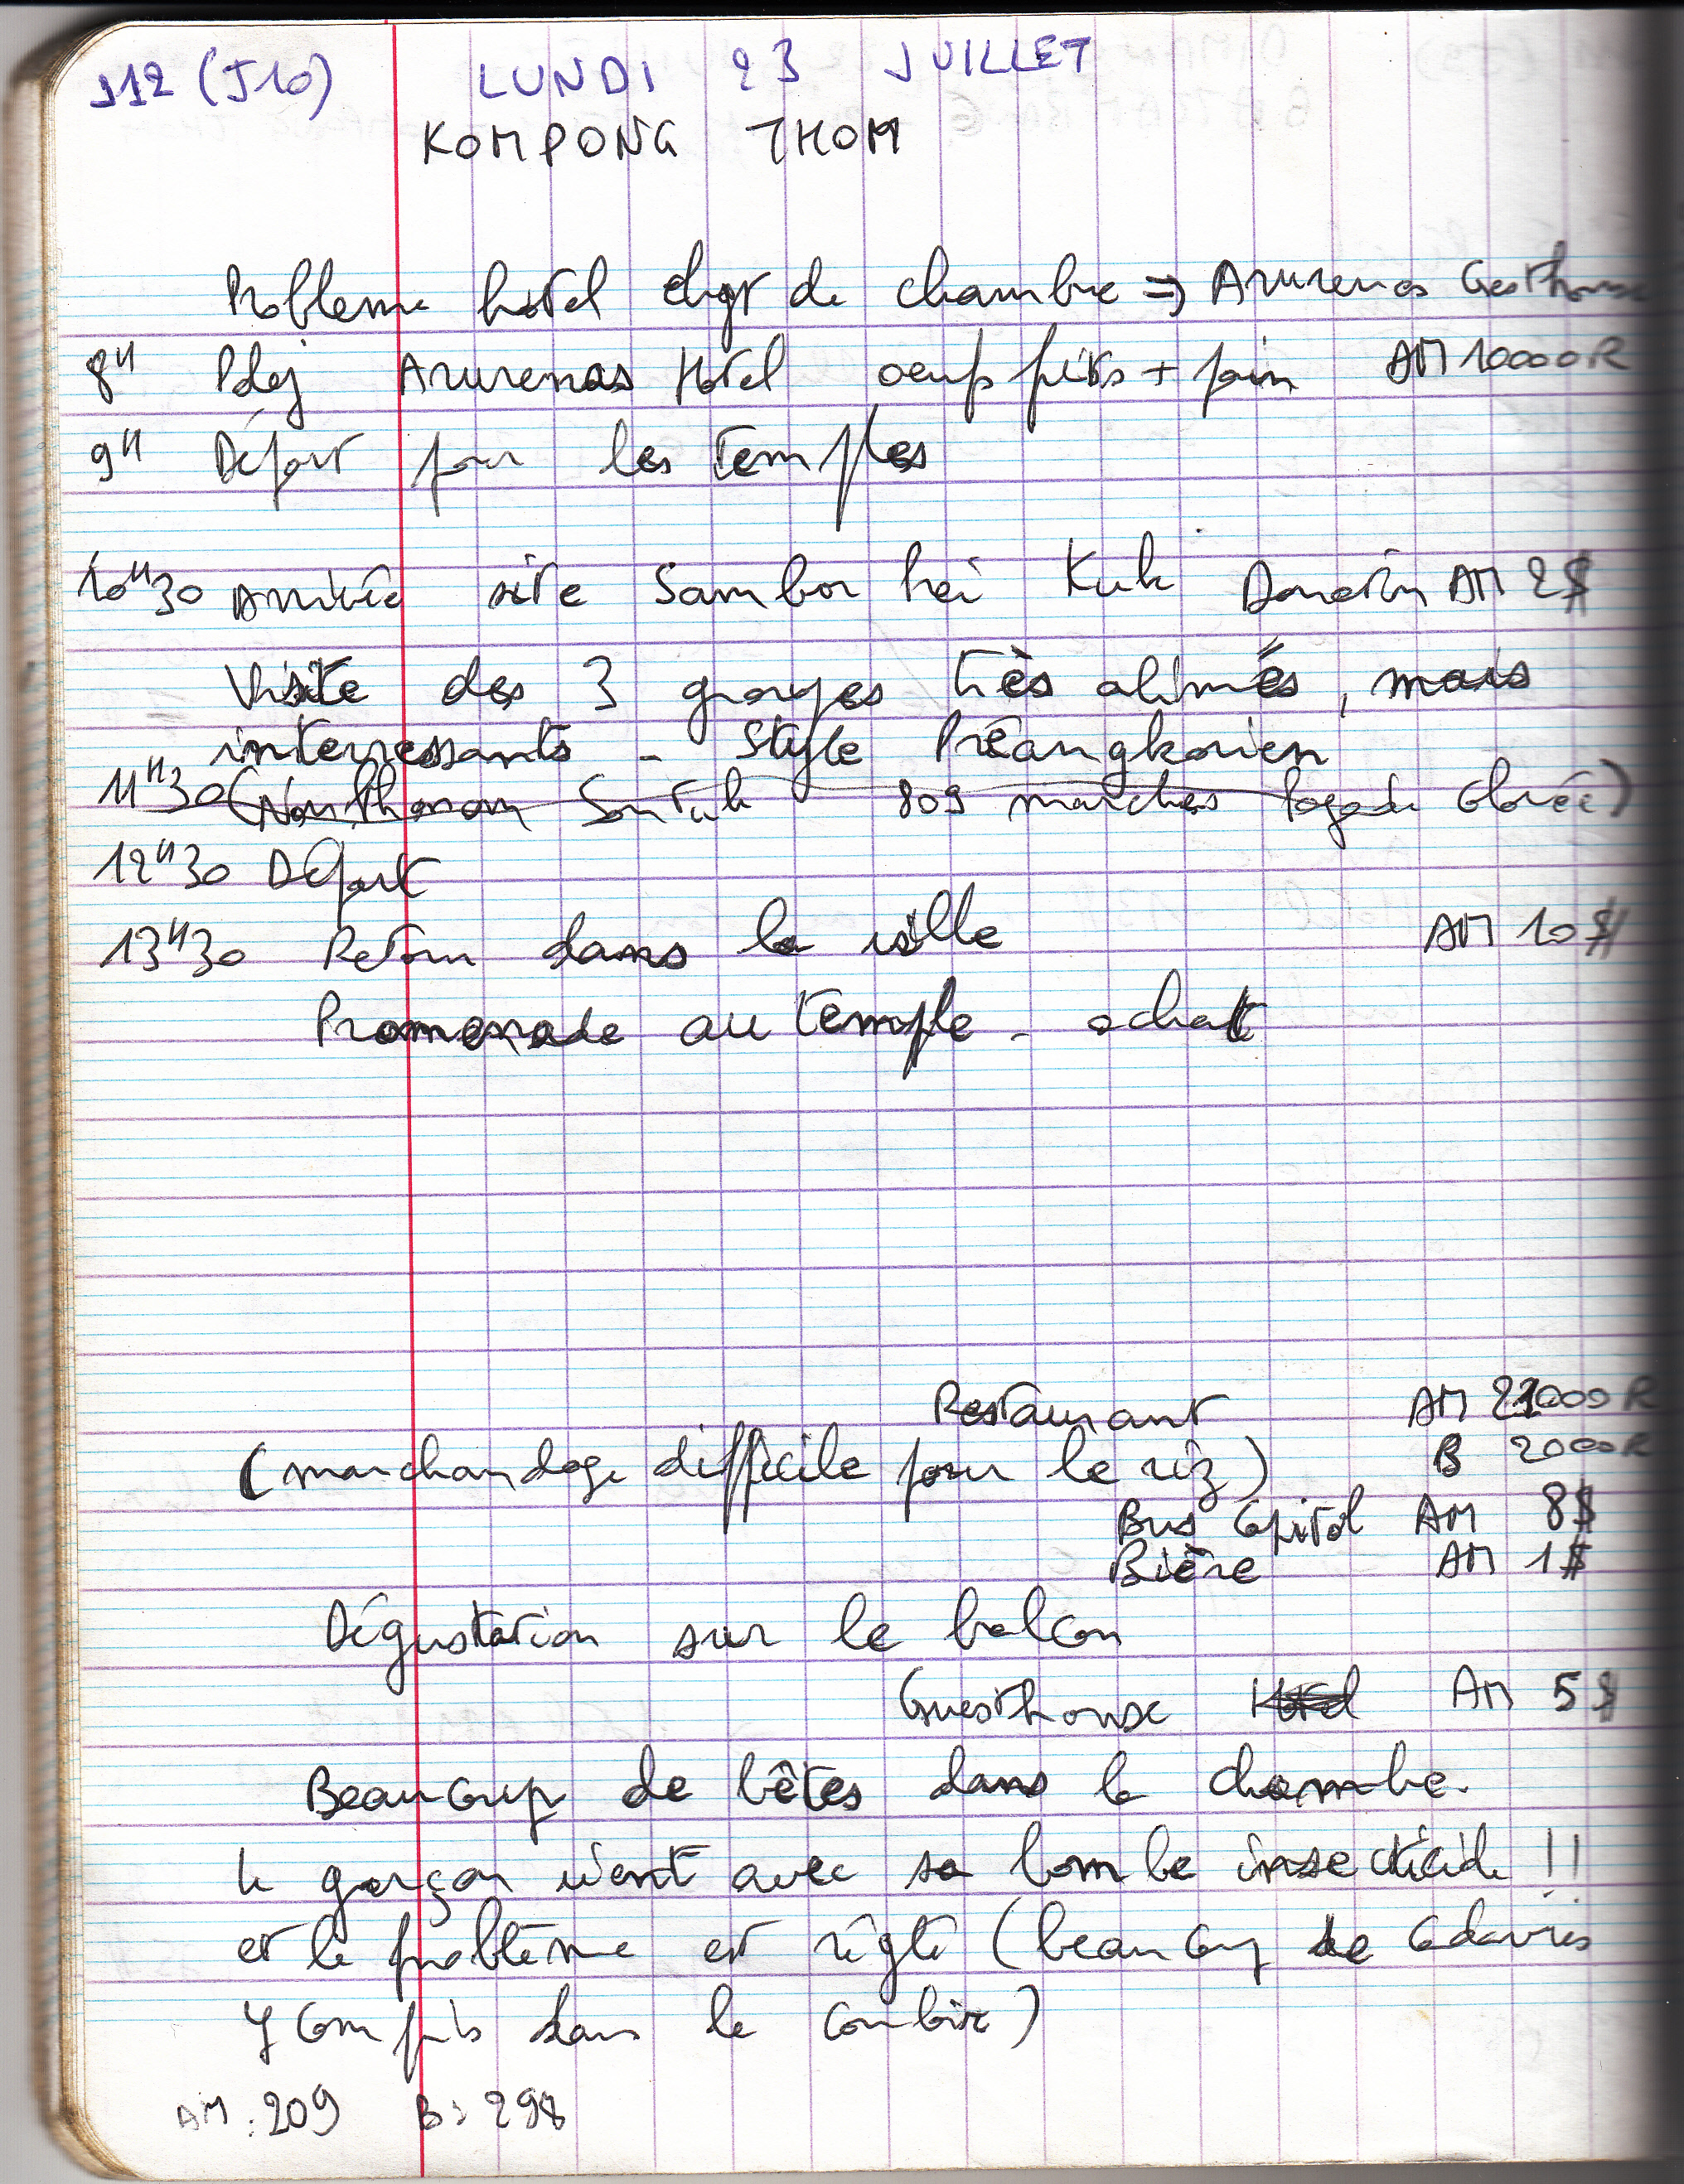 J12 (J10) LUNDI 23 JUILLET
KOMPONG THOM
Probleme hotel chgt de chambre => Arunras Guesthouse
8H Pdej Arunras Hotel oeufs frits + pain AM 10000R
9H Départ pour les temples
10H30 Arrivée site Sambor Prei Kuk Donation AM 2$
Visite des 3 groupes très abimés, mais
interressants - Style Préangkorien
11H30 (Santuk 809 marches pagode colorée)
12H30 Départ
13H30 Retour dans la ville AM 10$
Promenade au temple - achat
Restaurant AM 21000R
(marchandage difficile pour le riz) B 2000R
Bus Capitol AM 8$
Bière AM 1$
Dégustation sur le balcon
Guesthouse Hotel AM 5$
Beaucoup de bêtes dans la chambre.
Le garçon vient avec sa bombe insecticide !!
et le problème est réglé (beaucoup de cadavres
y compris dans le couloir)
AM : 209 B : 298